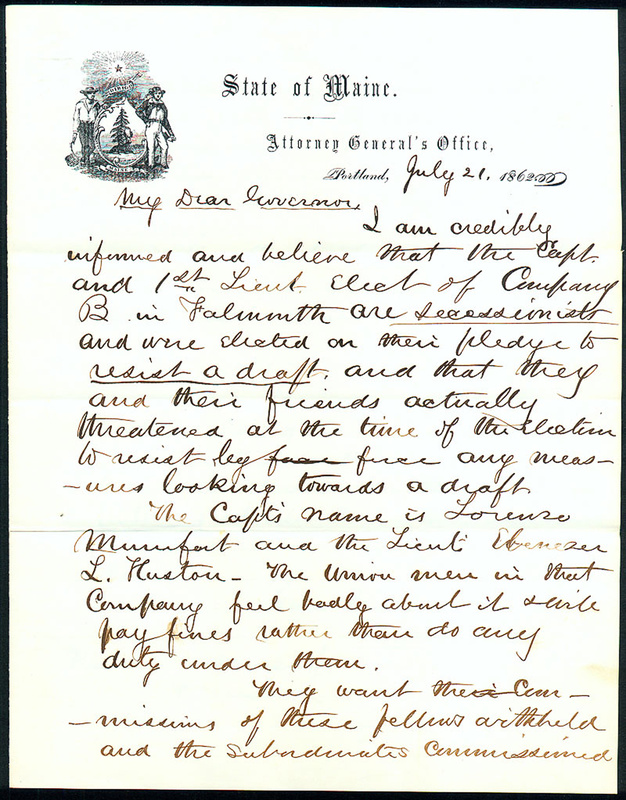 State of Maine.
Attorney General's Office,
Portland, July 21. 1862
My Dear Governor,
I am credibly
informed and believe that the Capt.
and 1st Lieut. Elect of Company
B in Falmouth are secessionists
and were elected on their pledge to
resist a draft, and that they
and their friends actually
threatened at the time of the election
to resist by force any meas-
-ures looking towards a draft
The Capts name is Lorenzo
and the Lieut. Ebenezer
L. Huston - The Union men in that
Company feel badly about it & will
pay fines rather than do any
duty under them.
They want their Com-
-missions of these fellows withheld
and the subordinates commissioned